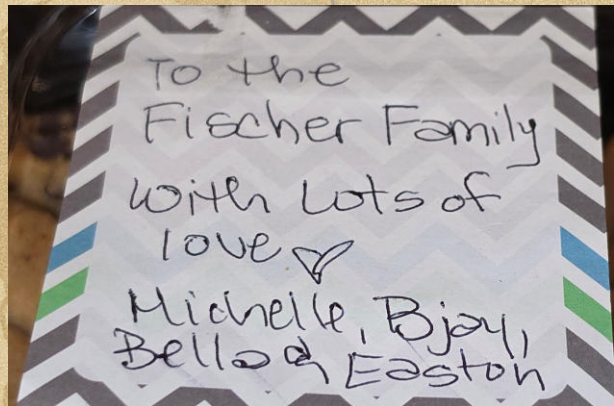 To the
Fischer Family
With Lots of
love
Michelle, Bjay,
Bella & Easton